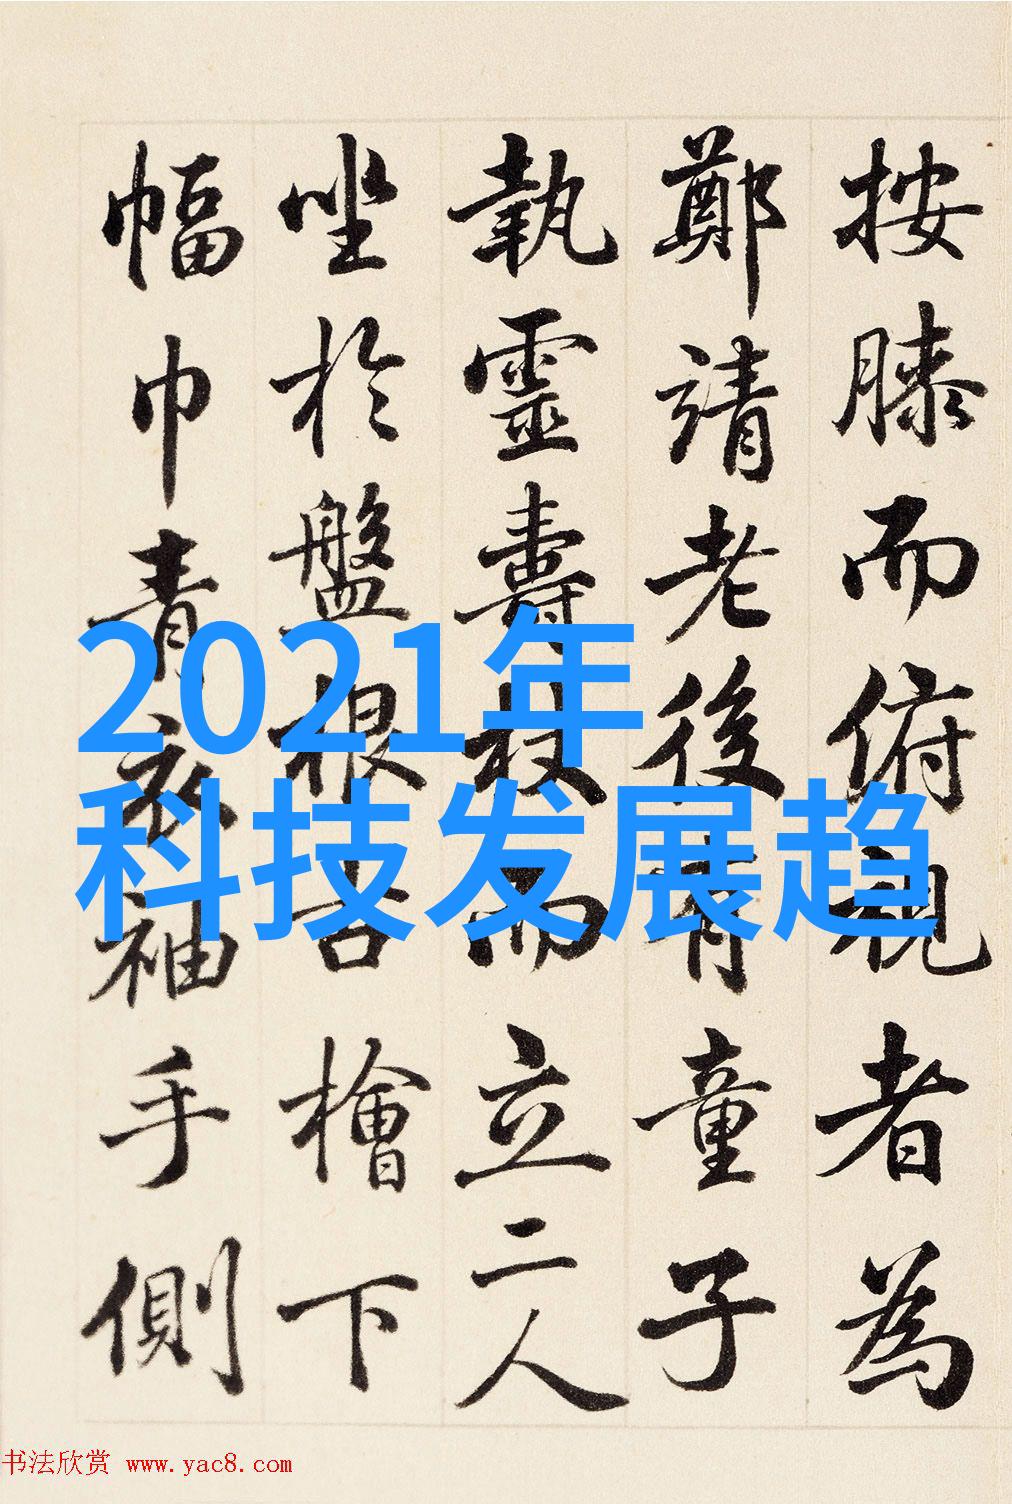 按膝而俯視者為
鄭靖老後有童子
執靈壽杖而立二人
坐於盤根古檜下
幅巾青衣袖手側
2021年
科技发展趋
书法欣赏 www.yac8.com